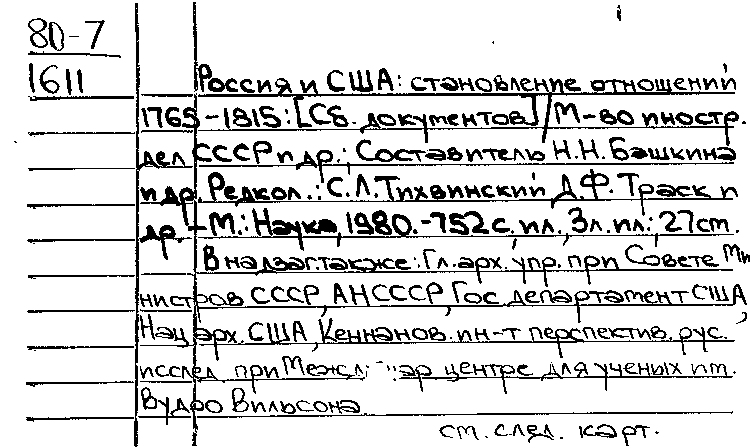 80-7
1611
Россия и США: становление отношений
1765-1815: [Сб. документов] / М-во иностр.
дел СССР и др.; Составитель Н.Н. Башкина
и др. Редкол.: С.Л. Тихвинский, Д.Ф. Траск и
др. - М.: Наука, 1980. - 752 с. ил., 3л. ил.; 27 см.
В надзаг. также: Гл. арх. упр. при Совете Ми
нистров СССР, АН СССР, Гос. департамент США,
Нац. арх. США, Кеннанов. ин-т перспектив. рус.
исслед. при центре для ученых им.
Вудро Вильсона
см. след. карт.